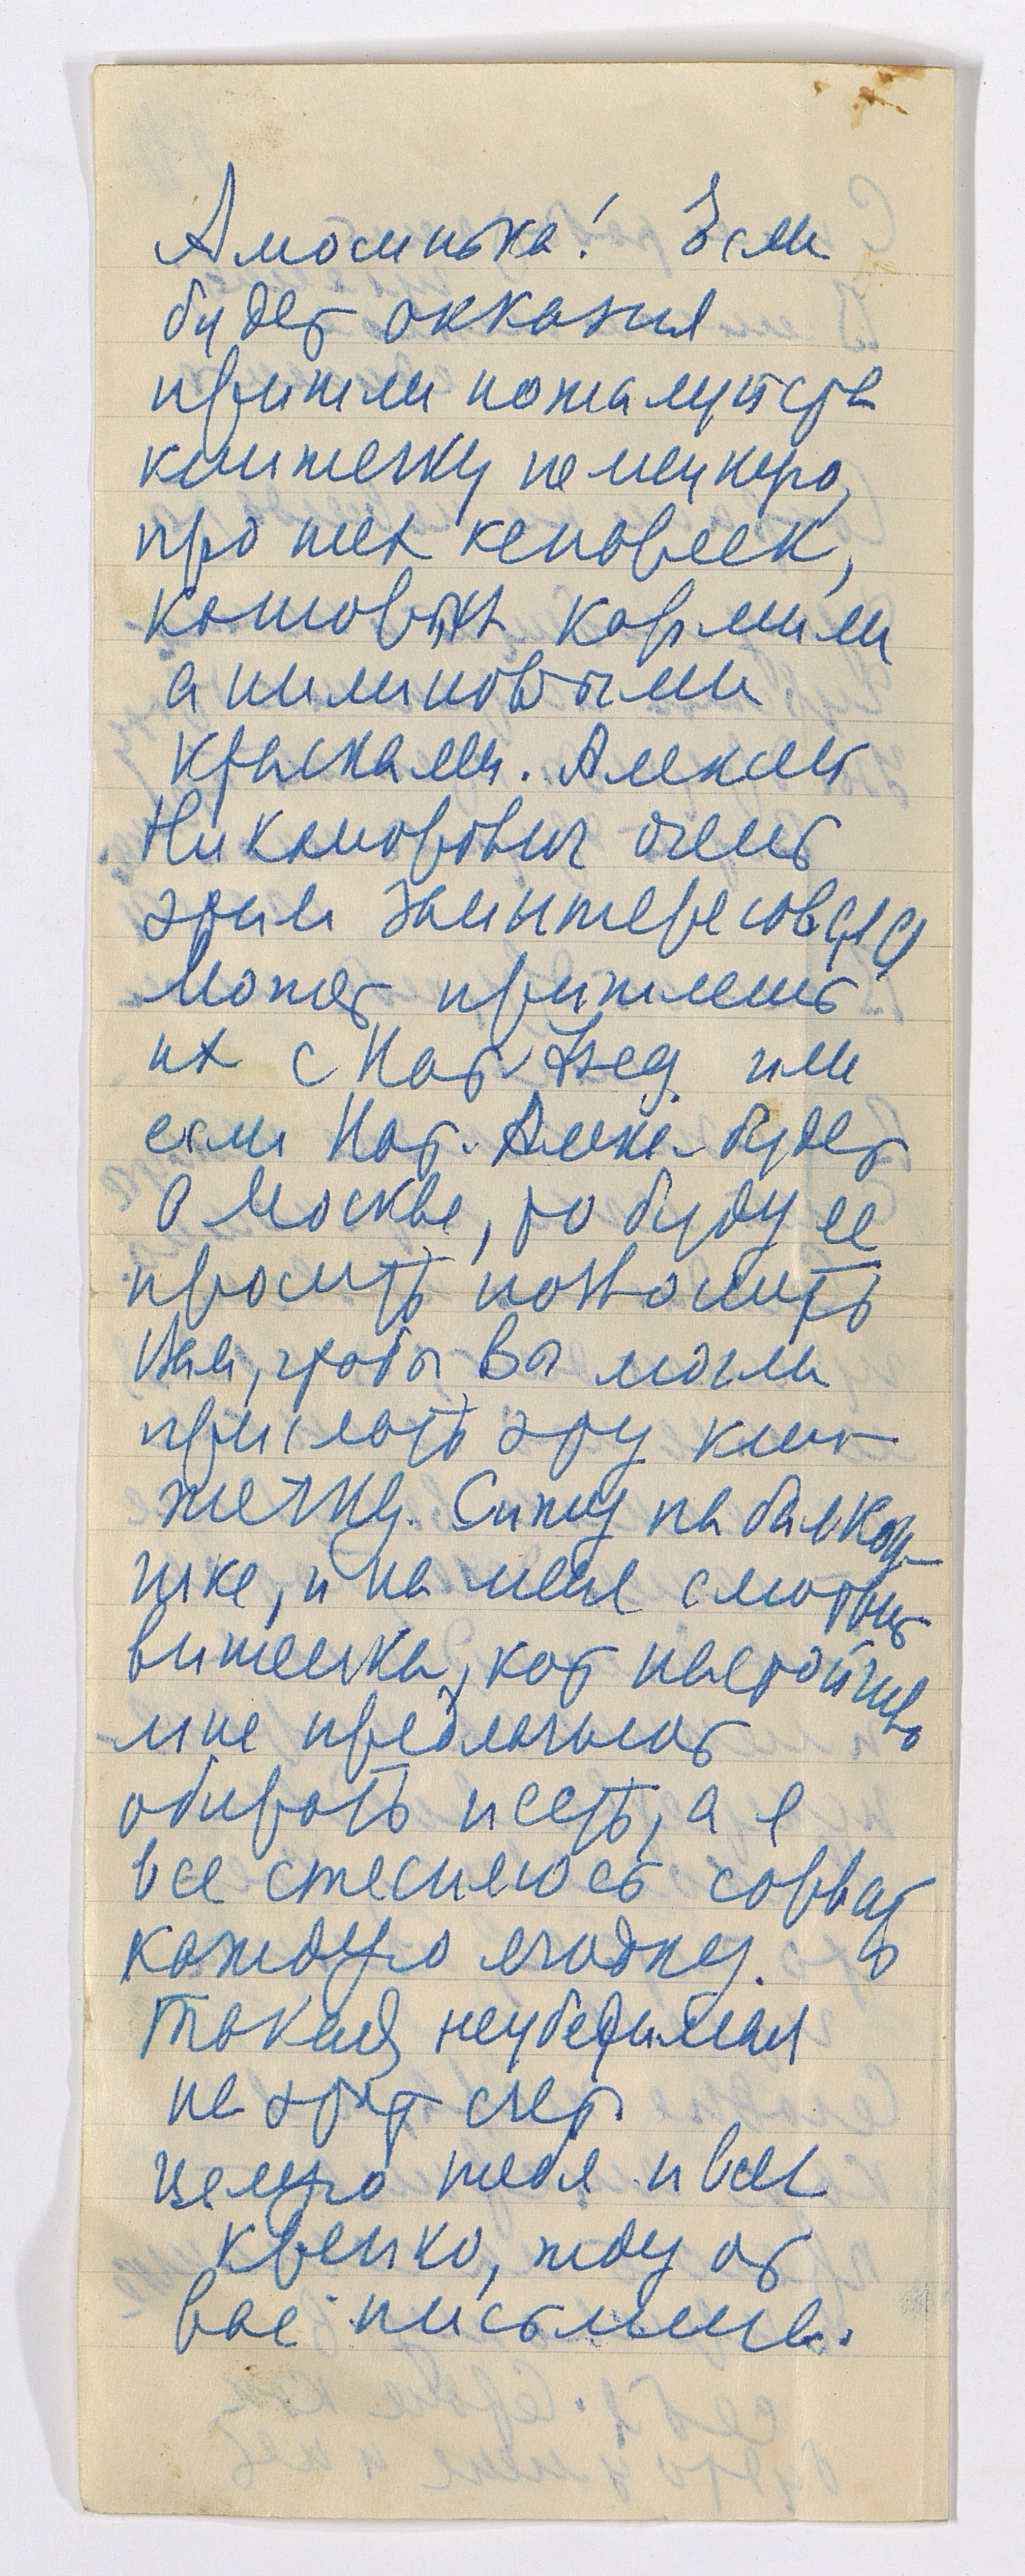 Амосинька! Если
будет окказия
пришли пожалуйста
книжечку немецкую,
про тех
которых кормили
анилиновыми
красками. Алексей
Никаноровичь очень
этим заинтересовался
Может пришлешь
их с Нат. или
если Нат. Алек. будет
в Москве, то буду ее
просить позвонить
Вам, чтобы Вы могли
прислать эту кни-
жечку. Сижу на балкон-
чике, и на меня смотрит
вишенка, кот настойчиво
мне предлагает
обирать и есть, а я
все стесняюсь сорвать
каждую ягодку.
Такая неубедимая
на этот счет.
Целую тебя и всех
крепко, жду от
вас письмеца.